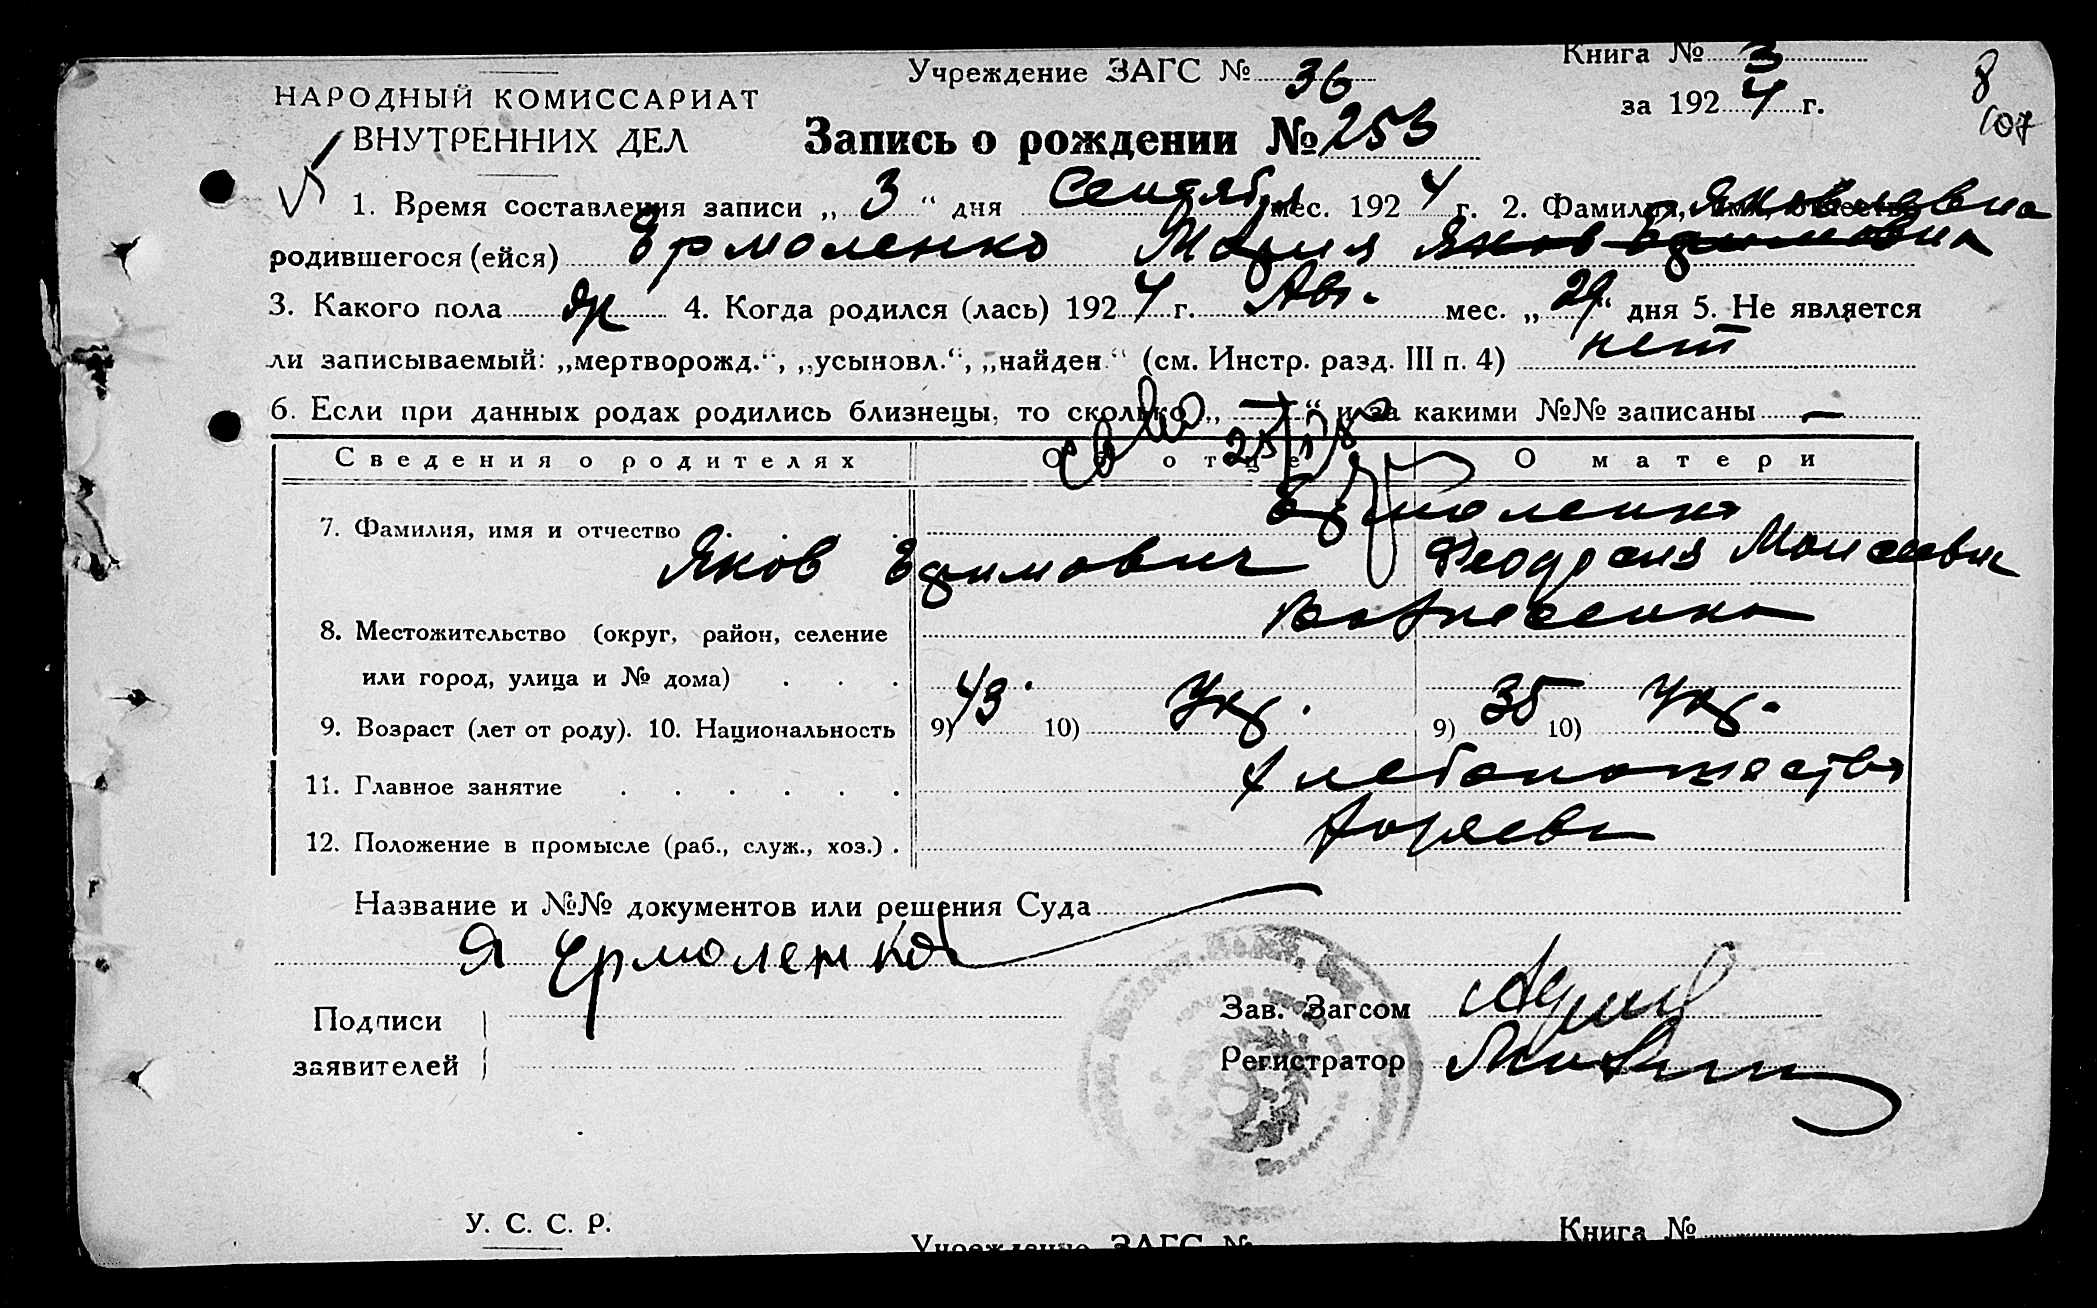 Учреждение ЗАГС № 36
Книга № 3
за 1924 г.
8
107
НАРОДНЫЙ КОМИССАРИАТ
ВНУТРЕННИХ ДЕЛ
Запись о рождении № 253
1. Время составления записи „3“ дня Сентября мес. 1924 г. 2. Фамилия, имя, отчество Яковлевна
родившегося (ейся) Ермоленко Мария Яков Ефимовна
3. Какого пола ж 4. Когда родился (лась) 1924 г. Авг. мес. „29“ дня 5. Не является
ли записываемый: „мертворожд.“, „усыновл.“, „найден“ (см. Инстр. разд. III п. 4) нет
6. Если при данных родах родились близнецы, то сколько „—“ и за какими №№ записаны —
Сведения о родителях Об отце О матери
7. Фамилия, имя и отчество Ермоленко
Яков Ефимович Феодосия Моисеевна
8. Местожительство (округ, район, селение Вознесенка
или город, улица и № дома)
9. Возраст (лет от роду). 10. Национальность 9) 43. 10) Укр. 9) 35 10) Укр.
11. Главное занятие Хлебопашество
12. Положение в промысле (раб., служ., хоз.) Хозяева
Название и №№ документов или решения Суда
Я Ермоленко
Подписи
заявителей
Зав. Загсом
Регистратор
У. С. С. Р.
Учреждение ЗАГС №
Книга №